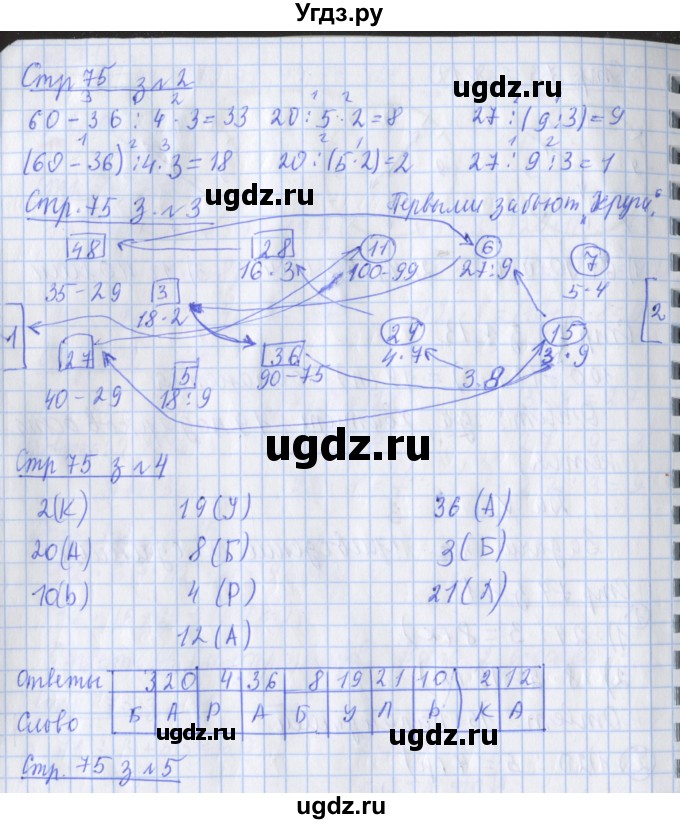 Угдз.ру
Стр 75 з №2
ugdz.ru
3 1 2
60 - 36 : 4 · 3 = 33
1 2
20 : 5 · 2 = 8
27 : (9 : 3) = 9
1 2 3
(60 - 36) : 4 · 3 = 18
2 1
20 : (5 · 2) = 2
1 2
27 : 9 : 3 = 1
ugdz.ru
Стр. 75 з. №3
Первыми забьют „Круги“.
48 28 11 6 7
16 · 3 100 - 99 27 : 9 5 · 4
35 - 29 3
18 · 2
1 2
27 36 24 15
90 - 75 4 · 7 3 · 9
5 3 · 8
40 - 29 18 : 9
ugdz.ru
Стр 75 з №4
2 (К) 19 (У) 36 (А)
20 (А) 8 (Б) 3 (Б)
ugdz.ru
10 (Ь) 4 (Р) 21 (Л)
12 (А)
ugdz.ru
Ответы 3 20 4 36 8 19 21 10 2 12
Слово Б А Р А Б У Л Ь К А
ugdz.ru ugdz.ru
Стр. 75 з №5
ugdz.ru